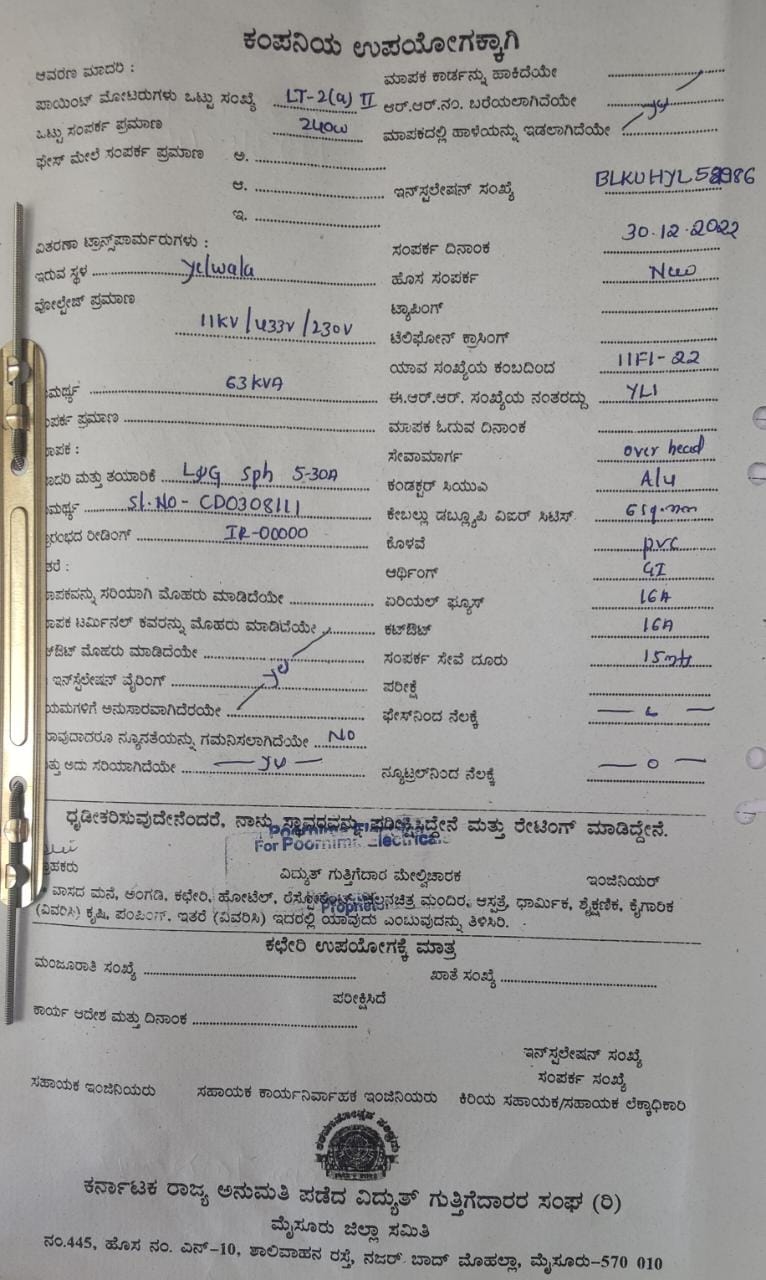 ಕಂಪನಿಯ ಉಪಯೋಗಕ್ಕಾಗಿ
ಆವರಣ ಮಾದರಿ :
ಮಾಪಕ ಕಾರ್ಡನ್ನು ಹಾಕಿದೆಯೇ
ಪಾಯಿಂಟ್ ಮೋಟರುಗಳು ಒಟ್ಟು ಸಂಖ್ಯೆ LT-2(a) II
ಆರ್.ಆರ್.ನಂ. ಬರೆಯಲಾಗಿದೆಯೇ
ಒಟ್ಟು ಸಂಪರ್ಕ ಪ್ರಮಾಣ 240w
ಮಾಪಕದಲ್ಲಿ ಹಾಳೆಯನ್ನು ಇಡಲಾಗಿದೆಯೇ
ಫೇಸ್ ಮೇಲೆ ಸಂಪರ್ಕ ಪ್ರಮಾಣ ಅ.
ಆ.
ಇನ್‌ಸ್ಟಲೇಷನ್ ಸಂಖ್ಯೆ
ಇ.
ವಿತರಣಾ ಟ್ರಾನ್ಸ್‌ಫಾರ್ಮರುಗಳು :
ಸಂಪರ್ಕ ದಿನಾಂಕ 30.12.2022
ಇರುವ ಸ್ಥಳ Yelwala
ಹೊಸ ಸಂಪರ್ಕ New
ವೋಲ್ಟೇಜ್ ಪ್ರಮಾಣ 11KV/433V/230V
ಟ್ಯಾಪಿಂಗ್
ಟೆಲಿಫೋನ್ ಕ್ರಾಸಿಂಗ್
ಯಾವ ಸಂಖ್ಯೆಯ ಕಂಬದಿಂದ 11F1-22
ಮರ್ಥ್ಯ 63KVA
ಈ.ಆರ್.ಆರ್. ಸಂಖ್ಯೆಯ ನಂತರದ್ದು YL1
ಪರ್ಕ ಪ್ರಮಾಣ
ಮಾಪಕ ಓದುವ ದಿನಾಂಕ
ಾಪಕ :
ಸೇವಾಮಾರ್ಗ over head
ಾದರಿ ಮತ್ತು ತಯಾರಿಕೆ L&G Sph 5-30A
ಕಂಡಕ್ಟರ್ ಸಿಯುಎ Alu
ಮರ್ಥ್ಯ Sl.No- CD0308111
ಕೇಬಲ್ಲು ಡಬ್ಲ್ಯೂಪಿ ವಿಐರ್ ಸಿಟಿಸ್ 6sq.mm
ರಂಭದ ರೀಡಿಂಗ್ IR-00000
ಕೊಳವೆ pvc
ತರೆ :
ಆರ್ಥಿಂಗ್ GI
ಾಪಕವನ್ನು ಸರಿಯಾಗಿ ಮೊಹರು ಮಾಡಿದೆಯೇ
ಏರಿಯಲ್ ಫ್ಯೂಸ್ 16A
ಾಪಕ ಟರ್ಮಿನಲ್ ಕವರನ್ನು ಮೊಹರು ಮಾಡಿದೆಯೇ
ಕಟ್‌ಔಟ್ 16A
ಟ್‌ಔಟ್ ಮೊಹರು ಮಾಡಿದೆಯೇ
ಸಂಪರ್ಕ ಸೇವೆ ದೂರು 15mtr
ಇನ್‌ಸ್ಟಲೇಷನ್ ವೈರಿಂಗ್
ಪರೀಕ್ಷೆ
ಯಮಗಳಿಗೆ ಅನುಸಾರವಾಗಿದೆರಯೇ
ಫೇಸ್‌ನಿಂದ ನೆಲಕ್ಕೆ
ಾವುದಾದರೂ ನ್ಯೂನತೆಯನ್ನು ಗಮನಿಸಲಾಗಿದೆಯೇ NO
ತ್ತು ಅದು ಸರಿಯಾಗಿದೆಯೇ
ನ್ಯೂಟ್ರಲ್‌ನಿಂದ ನೆಲಕ್ಕೆ — 0 —
ಧೃಡೀಕರಿಸುವುದೇನೆಂದರೆ, ನಾನು ಸ್ಥಾವರವನ್ನು ಪರೀಕ್ಷಿಸಿದ್ದೇನೆ ಮತ್ತು ರೇಟಿಂಗ್ ಮಾಡಿದ್ದೇನೆ.
For Poornima Electricals
ಾಹಕರು
ವಿದ್ಯುತ್ ಗುತ್ತಿಗೆದಾರ ಮೇಲ್ವಿಚಾರಕ
ಇಂಜಿನಿಯರ್
ವಾಸದ ಮನೆ, ಅಂಗಡಿ, ಕಛೇರಿ, ಹೋಟೆಲ್, ರೆಸ್ಟೋರೆಂಟ್, ಚಲನಚಿತ್ರ ಮಂದಿರ, ಆಸ್ಪತ್ರೆ, ಧಾರ್ಮಿಕ, ಶೈಕ್ಷಣಿಕ, ಕೈಗಾರಿಕ
(ವಿವರಿಸಿ) ಕೃಷಿ, ಪಂಪಿಂಗ್, ಇತರೆ (ವಿವರಿಸಿ) ಇದರಲ್ಲಿ ಯಾವುದು ಎಂಬುವುದನ್ನು ತಿಳಿಸಿರಿ.
ಕಛೇರಿ ಉಪಯೋಗಕ್ಕೆ ಮಾತ್ರ
ಮಂಜೂರಾತಿ ಸಂಖ್ಯೆ
ಖಾತೆ ಸಂಖ್ಯೆ
ಪರೀಕ್ಷಿಸಿದೆ
ಕಾರ್ಯ ಆದೇಶ ಮತ್ತು ದಿನಾಂಕ
ಇನ್‌ಸ್ಟಲೇಷನ್ ಸಂಖ್ಯೆ
ಸಂಪರ್ಕ ಸಂಖ್ಯೆ
ಸಹಾಯಕ ಇಂಜಿನಿಯರು
ಸಹಾಯಕ ಕಾರ್ಯನಿರ್ವಾಹಕ ಇಂಜಿನಿಯರು
ಕಿರಿಯ ಸಹಾಯಕ/ಸಹಾಯಕ ಲೆಕ್ಕಾಧಿಕಾರಿ
ಕರ್ನಾಟಕ ರಾಜ್ಯ ಅನುಮತಿ ಪಡೆದ ವಿದ್ಯುತ್ ಗುತ್ತಿಗೆದಾರರ ಸಂಘ (ರಿ)
ಮೈಸೂರು ಜಿಲ್ಲಾ ಸಮಿತಿ
ನಂ.445, ಹೊಸ ನಂ. ಎನ್-10, ಶಾಲಿವಾಹನ ರಸ್ತೆ, ನಜರ್ ಬಾದ್ ಮೊಹಲ್ಲಾ, ಮೈಸೂರು-570 010